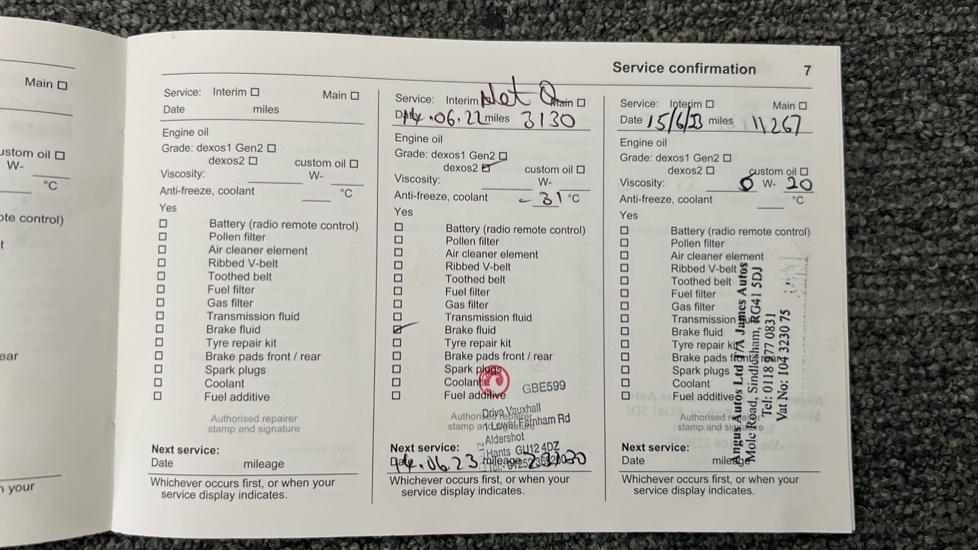 Main
ustom oil
W-
°C
ote control)
t
ear
n your
Service confirmation 7
Service: Interim Main
Date miles
Engine oil
Grade: dexos1 Gen2
dexos2 custom oil
Viscosity: W-
Anti-freeze, coolant °C
Yes
Battery (radio remote control)
Pollen filter
Air cleaner element
Ribbed V-belt
Toothed belt
Fuel filter
Gas filter
Transmission fluid
Brake fluid
Tyre repair kit
Brake pads front / rear
Spark plugs
Coolant
Fuel additive
Authorised repairer
stamp and signature
Next service:
Date mileage
Whichever occurs first, or when your
service display indicates.
Service: Interim Main
Date 14.06.22 miles 3130
Engine oil
Grade: dexos1 Gen2
dexos2 custom oil
Viscosity: W-
Anti-freeze, coolant -31 °C
Yes
Battery (radio remote control)
Pollen filter
Air cleaner element
Ribbed V-belt
Toothed belt
Fuel filter
Gas filter
Transmission fluid
Brake fluid
Tyre repair kit
Brake pads front / rear
Spark plugs
Coolant
Fuel additive
GBE599
Authorised repairer
stamp and
Drive Vauxhall
Lower Farnham Rd
Aldershot
Hants GU12 4DZ
Next service:
Date 14.06.23 mileage 23030
Whichever occurs first, or when your
service display indicates.
Service: Interim Main
Date 15/6/23 miles 11267
Engine oil
Grade: dexos1 Gen2
dexos2 custom oil
Viscosity: 0 W- 20
Anti-freeze, coolant °C
Yes
Battery (radio remote control)
Pollen filter
Air cleaner element
Ribbed V-belt
Toothed belt
Fuel filter
Gas filter
Transmission fluid
Brake fluid
Tyre repair kit
Brake pads front / rear
Spark plugs
Coolant
Fuel additive
Authorised repairer
stamp and signature
Angus Autos Ltd T/A James Autos
Mole Road, Sindlesham, RG41 5DJ
Tel: 0118 977 0831
Vat No: 104 3230 75
Next service:
Date mileage
Whichever occurs first, or when your
service display indicates.